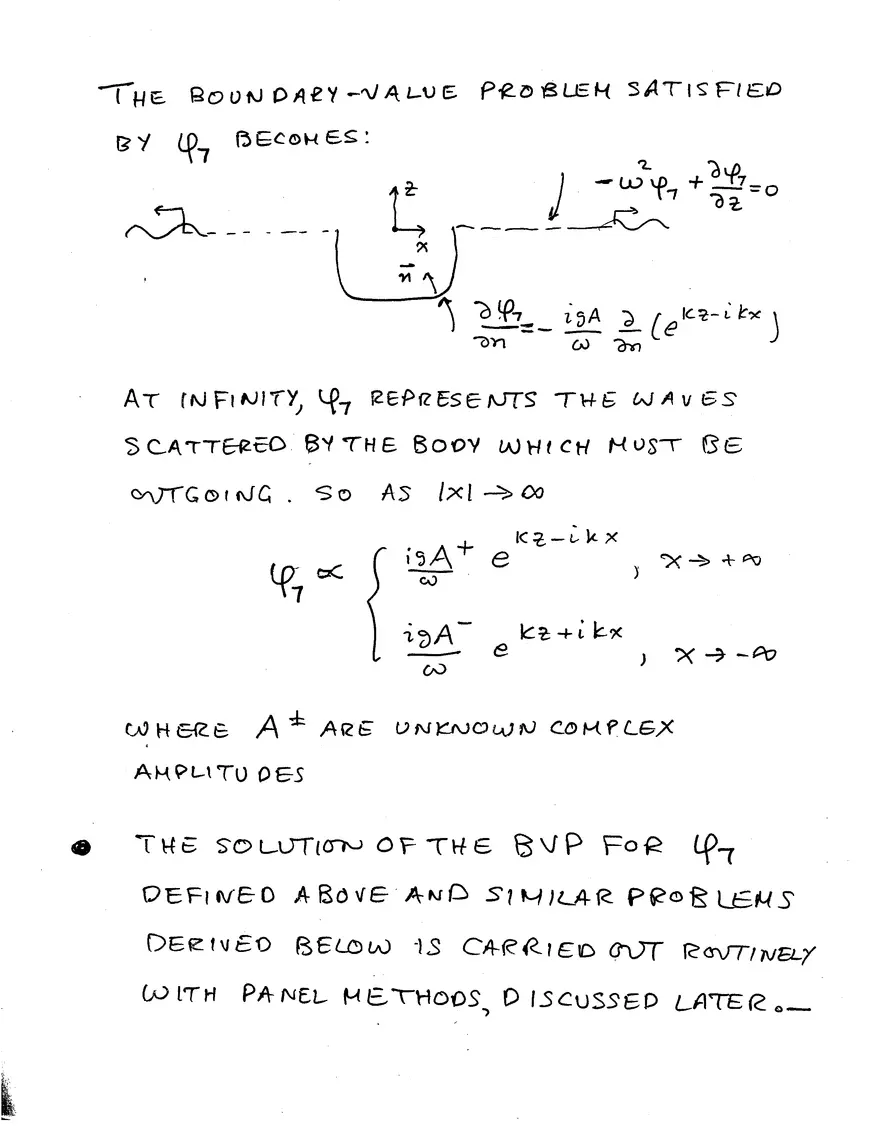 THE BOUNDARY-VALUE PROBLEM SATISFIED
BY φ₇ BECOMES:
z
-ω²φ₇ + ∂φ₇/∂z = 0
x
n⃗
∂φ₇/∂n = - igA/ω ∂/∂n (e^{kz-ikx})
AT INFINITY, φ₇ REPRESENTS THE WAVES
SCATTERED BY THE BODY WHICH MUST BE
OUTGOING. SO AS |x| → ∞
φ₇ ∝ { igA⁺/ω e^{kz-ikx}, x → +∞
igA⁻/ω e^{kz+ikx}, x → -∞
WHERE A± ARE UNKNOWN COMPLEX
AMPLITUDES
• THE SOLUTION OF THE BVP FOR φ₇
DEFINED ABOVE AND SIMILAR PROBLEMS
DERIVED BELOW IS CARRIED OUT ROUTINELY
WITH PANEL METHODS, DISCUSSED LATER.—